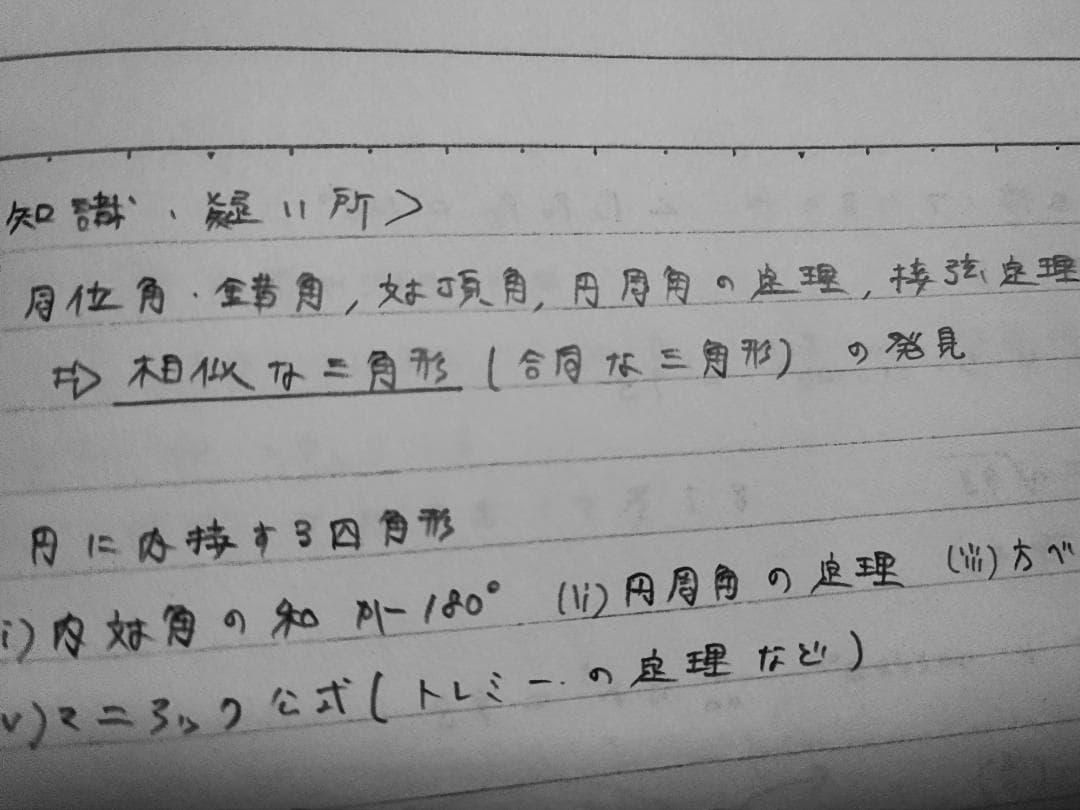 知識、疑い所>
同位角・錯角,対頂角,円周角の定理,接弦定理
⇒ 相似な三角形(合同な三角形)の発見
円に内接する四角形
i)内対角の和が180° (ii)円周角の定理 (iii)方べ
v)マニアック公式(トレミーの定理など)